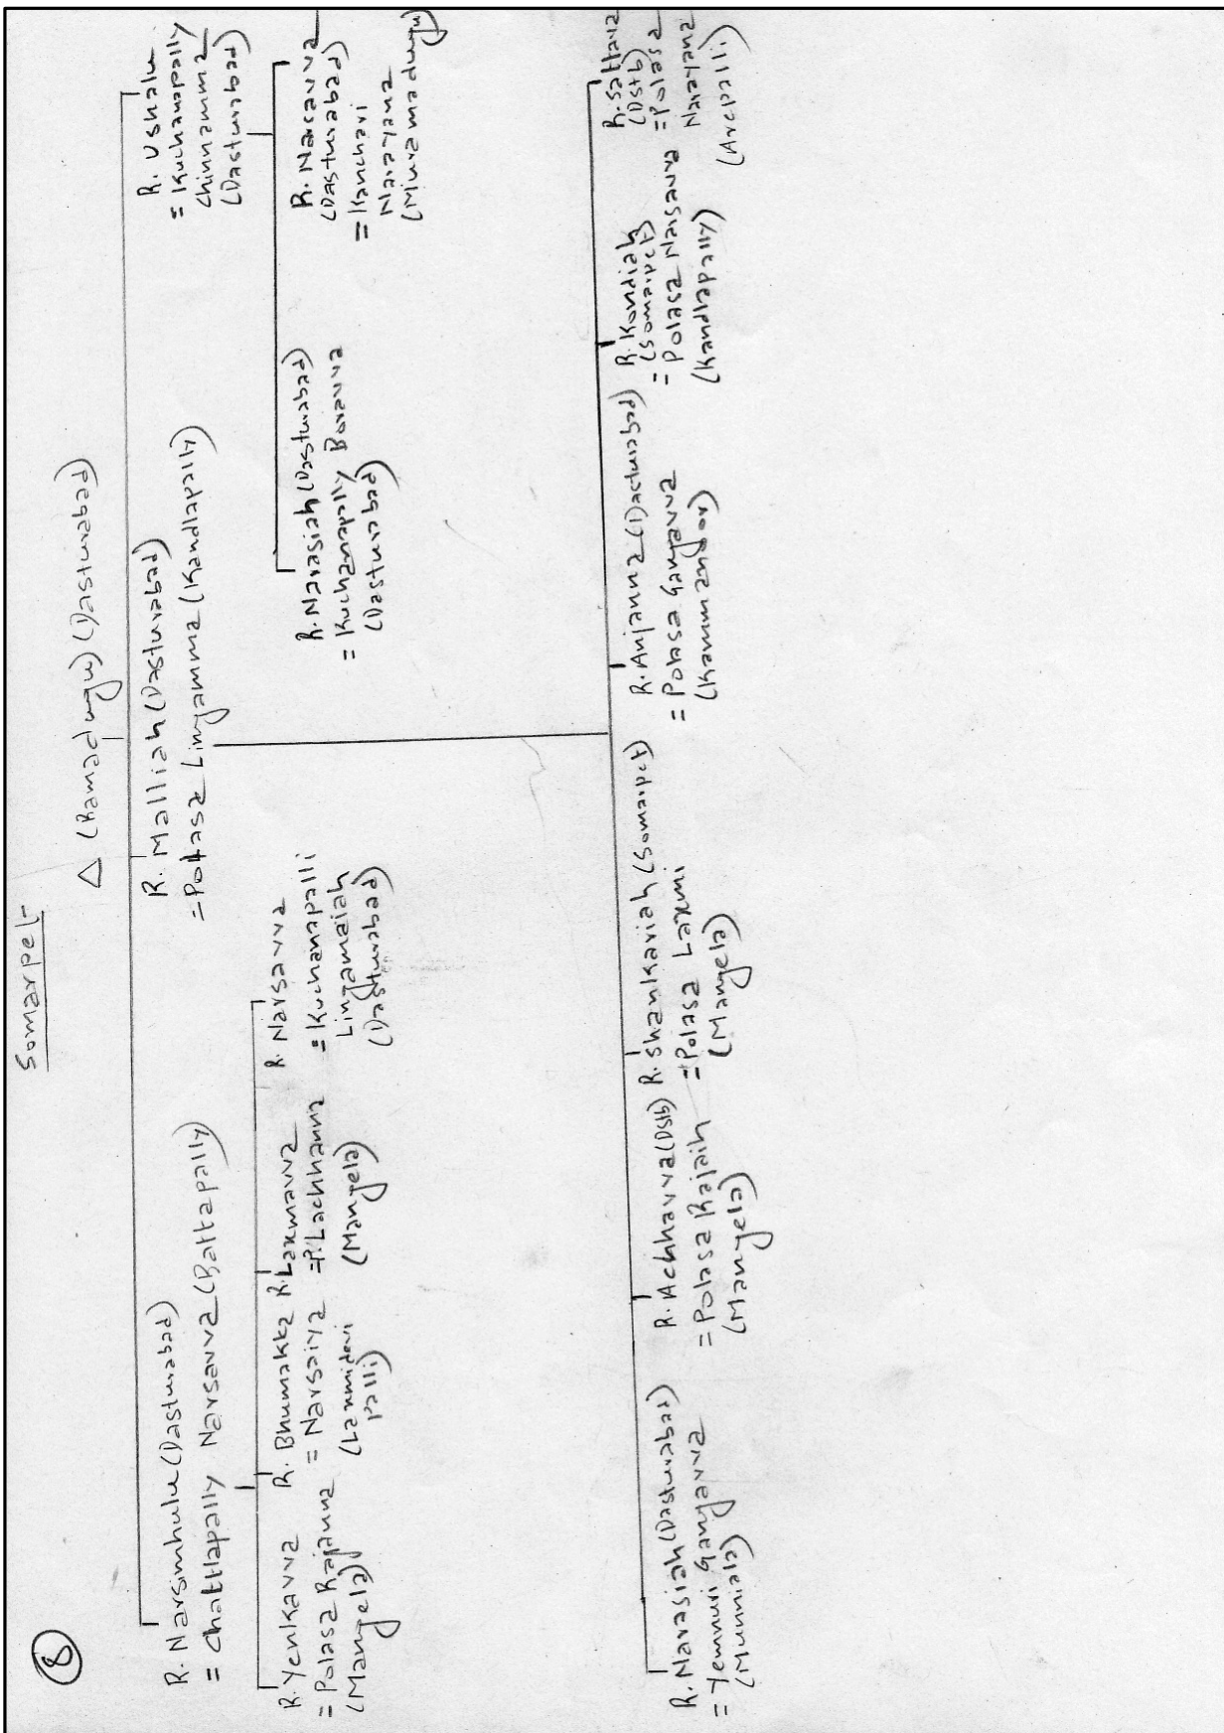 8
Somarpet
△ (Ramadugu) (Dasturabad)
R. Narsimhulu (Dasturabad)
= Chattlapally Narsavva (Battapally)
R. Malliah (Dasturabad)
= Polasa Lingamma (Kandlapally)
R. Ushalu
= Kuchanapally
Chinnamma
(Dasturabad)
R. Yenkavva
= Polasa Rajanna
(Mangela)
R. Bhumakka
= Narsaiya
(Laxmidevi
palli)
R. Laxmavva
= P. Lachhanna
(Mangela)
R. Narsavva
= Kuchanapalli
Lingamaiah
(Dasturabad)
R. Narasiah (Dasturabad)
= Kuchanapally Boravva
(Dasturabad)
R. Narsavva
(Dasturabad)
= Kanchari
Narayana
(Muramadugu)
R. Narasiah (Dasturabad)
= Yemnuri Gangavva
(Munniala)
R. Achhavva (Dstb)
= Polasa Rajaih
(Mangela)
R. Shankariah (Somarpet)
= Polasa Laxmi
(Mangela)
R. Anjanna (Dasturabad)
= Polasa Gangavva
R. Kondiah
(Somarpet)
= Polasa Narsavva
(Kandlapally)
R. Sattava
(Dstb)
= Polasa
Narayana
(Arepalli)